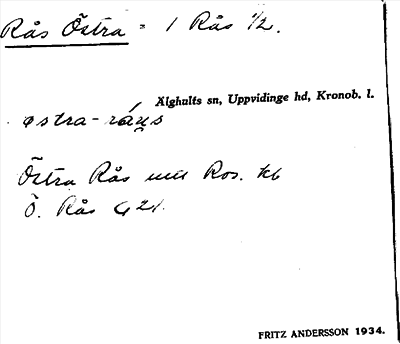 Rås Östra = 1 Rås 1/2.
Älghults sn, Uppvidinge hd, Kronob. l.
østra-råṇs
Östra Rås med Ros. kb
Ö. Rås G 21.
FRITZ ANDERSSON 1934.